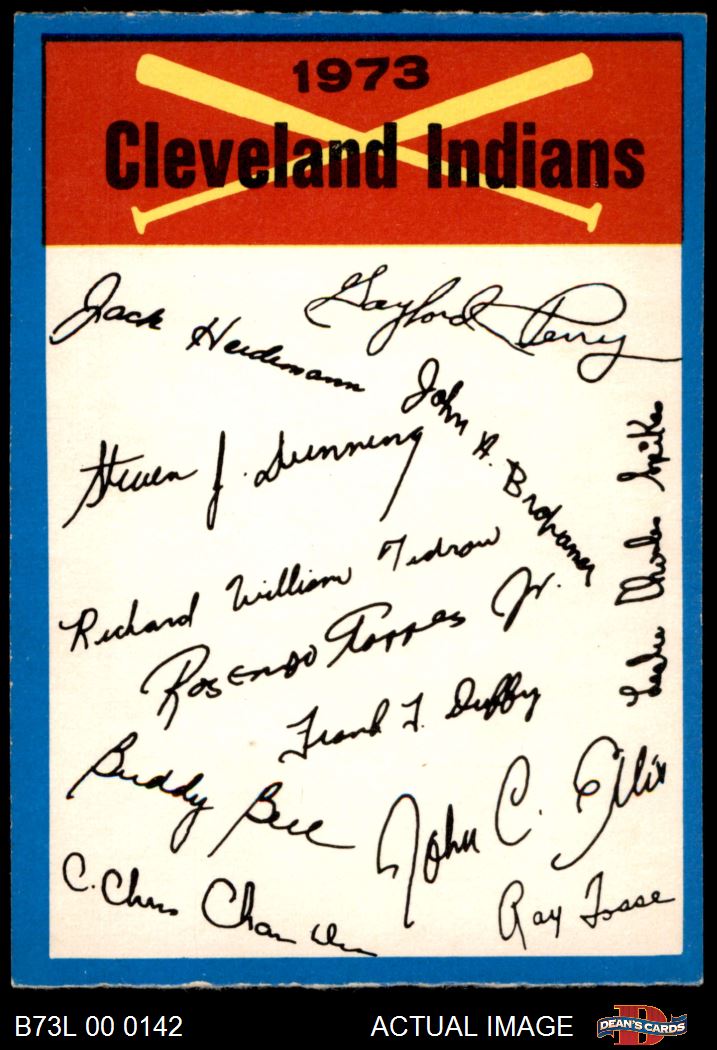 1973
Cleveland Indians
Jack Heidemann
Gaylord Perry
John A. Brohamer
Steven J. Dunning
Leslie Charles Spikes
Richard William Tidrow
Rosendo Torres Jr.
Frank T. Duffy
Buddy Bell
John C. Ellis
C. Chris Cham
Ray Fosse
B73L 00 0142
ACTUAL IMAGE
DEAN'S CARDS